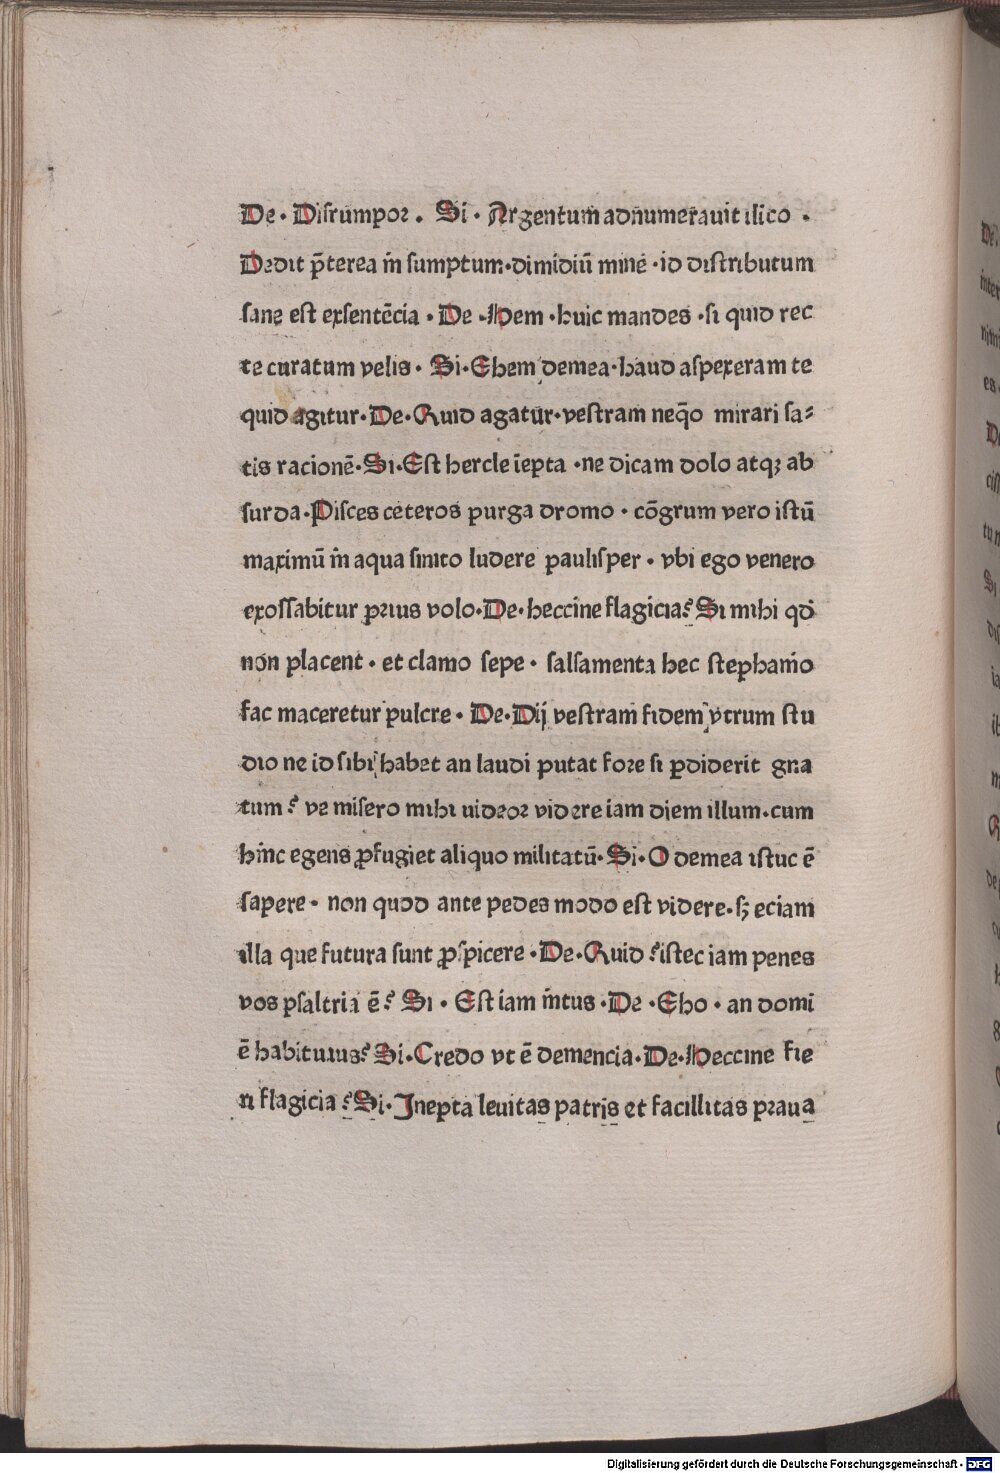 De · Disrumpor . Si · Argentum adnumerauit ilico .
Dedit p̄terea in̄ sumptum · dimidiū mine · id distributum
sane est exsentēcia · De · Hem · huic mandes · si quid rec
te curatum velis · Si · Ehem demea · haud aspexeram te
quid agitur · De · Quid agatur · vestram neq̄o mirari sa⸗
tis racionē · Si · Est hercle īepta · ne dicam dolo atqꝫ ab
surda · Pisces ceteros purga dromo · cōgrum vero istū
maximū in̄ aqua sinito ludere paulisper · vbi ego venero
exossabitur prius volo · De · heccine flagicia? Si mihi qd̄
non placent · et clamo sepe · salsamenta hec stephanio
fac maceretur pulcre · De · Dij vestram fidem vtrum stu
dio ne id sibi habet an laudi putat fore si ꝑdiderit gna
tum ? ve misero mihi uideor videre iam diem illum · cum
hinc egens ꝓfugiet aliquo militatū · Si · O demea istuc ē
sapere · non quod ante pedes modo est videre · sꝫ eciam
illa que futura sunt ꝓspicere · De · Quid ? istec iam penes
vos psaltria ē ? Si · Est iam in̄tus · De · Eho · an domi
ē habiturus? Si · Credo vt ē demencia · De · Heccine fie
ri flagicia ? Si · Inepta leuitas patris et facillitas praua
Digitalisierung gefördert durch die Deutsche Forschungsgemeinschaft - DFG